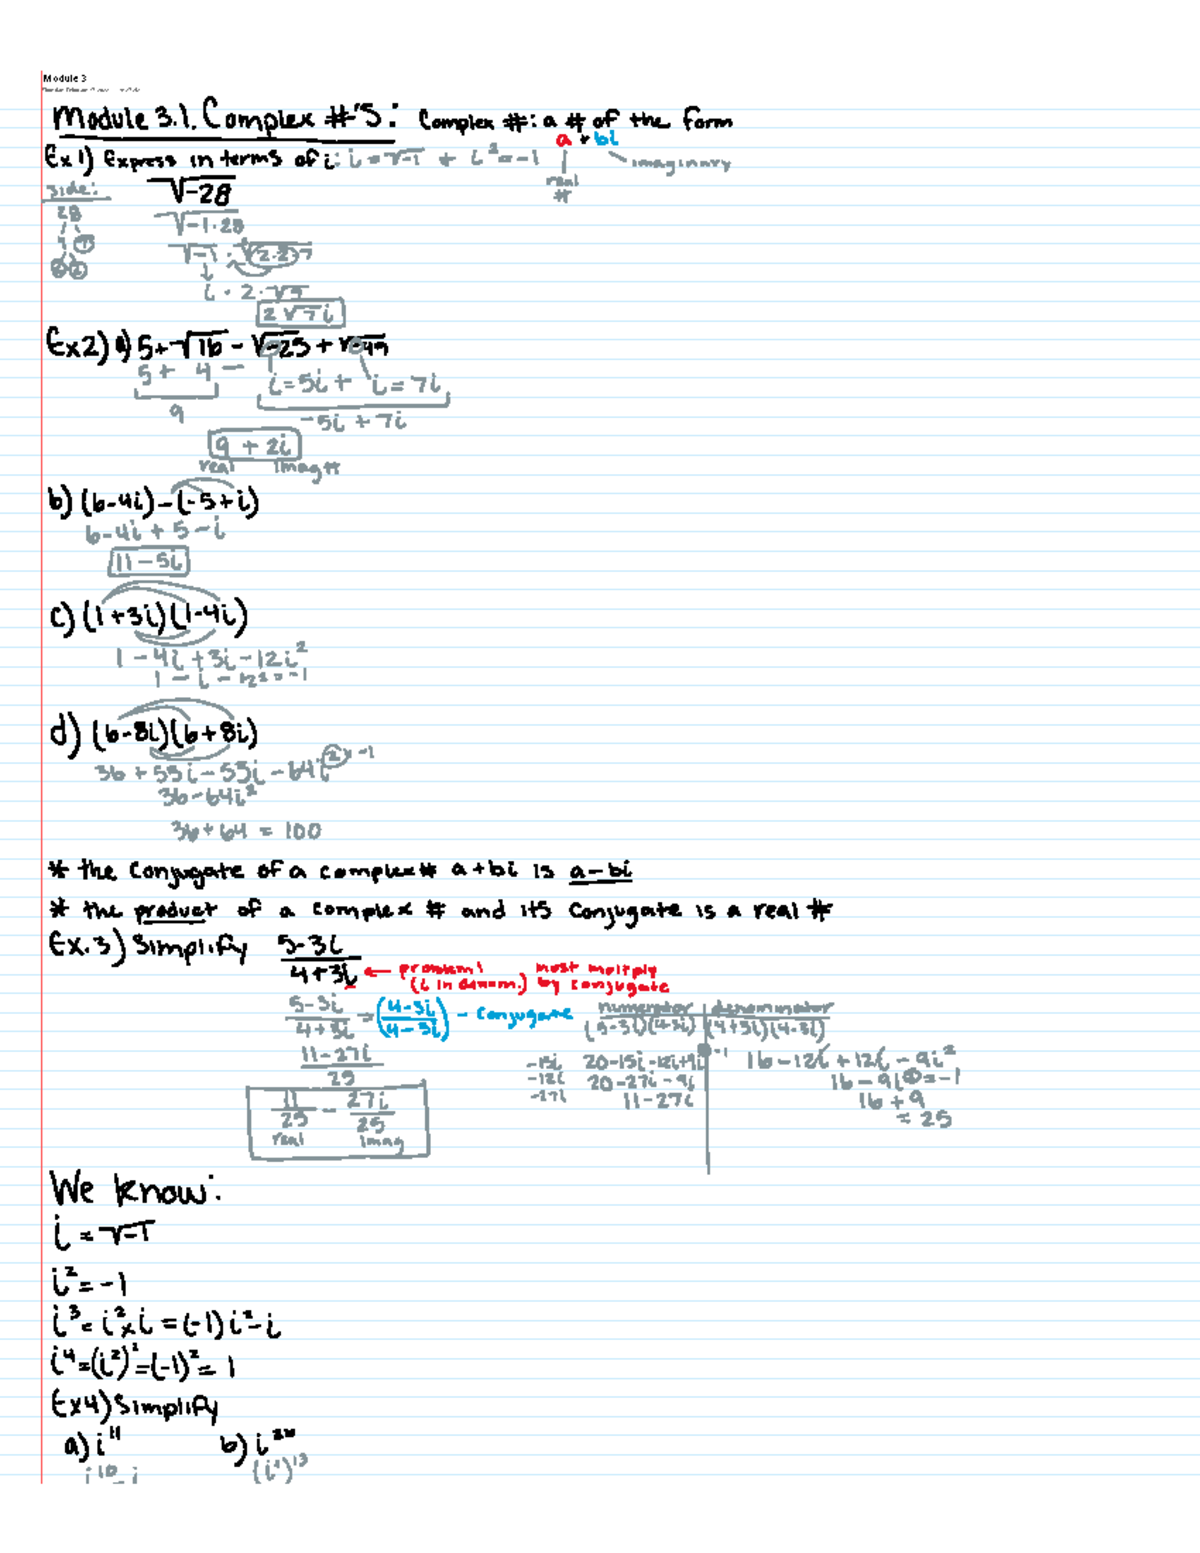 Module 3
Module 3.1. Complex #'s: Complex #: a # of the form
a + bi
Ex 1) Express in terms of i: i = √-1 + i² = -1
real #
imaginary
side:
28
√-28
√-1·28
√-1 · √(2·2)7
i · 2 · √7
2√7i
Ex2) a) 5+√16 - √-25 + √-49
5 + 4 - i=5i + i=7i
9
-5i + 7i
9 + 2i
real imag #
b) (6-4i) - (-5+i)
6-4i + 5 - i
11 - 5i
c) (1+3i)(1-4i)
1 - 4i + 3i - 12i²
1 - i - 12² = -1
d) (6-8i)(6+8i)
36 + 55i - 55i - 64i² × -1
36-64i²
36+64 = 100
* the conjugate of a complex # a+bi is a-bi
* the product of a complex # and its conjugate is a real #
Ex.3) Simplify 5-3i / 4+3i
← problem! (i in denom.) must multply by conjugate
5-3i / 4+3i = (4-3i / 4-3i) - conjugate
numerator | denominator
(5-3i)(4-3i) | (4+3i)(4-3i)
11-27i / 25
-15i
-12i
-27i
20-15i-12i+9i
20-27i-9i
11-27i
-1
16-12i+12i-9i²
16-9i② = -1
16+9
= 25
11/25 - 27i/25
real imag
We know:
i = √-1
i² = -1
i³ = i² × i = (-1) i = - i
i⁴ = (i²)² = (-1)² = 1
Ex4) Simplify
a) i¹¹ b) i
i¹⁰ - i (i⁴)¹³